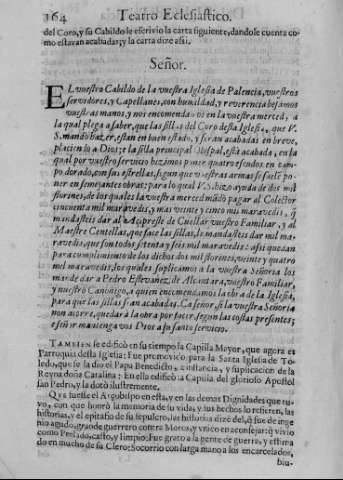 164 Teatro Eclesiastico.
del Coro, y su Cabildo le escrivio la carta siguiente, dandole cuenta co
mo estavan acabadas; y la carta dize assi.
Señor.
EL vuestro Cabildo de la vuestra Iglesia de Palencia, vuestros
servidores, y Capellanes, con humildad, y reverencia besamos
vuestras manos, y nos encomendamos en la vuestra merced, a
la qual plega a saber, que las sillas del Coro desta Iglesia, que V.
S. mandò hazer, estàn en buen estado, y seràn acabadas en breve,
placiendo a Dios; e la silla principal Obispal, està acabada, en la
qual por vuestro servicio hezimos poner quatro escudos en cam-
po dorado, con sus estrellas, segun que vuestras armas se suele po-
ner en semejantes obras; para lo qual V.S. hizo ayuda de dos mil
florines, de los quales la vuestra merced mãdò pagar al Colector
cincuenta mil maravedis, y mas veinte y cinco mil maravedis, q̃
mandasteis dar al Arcipreste de Cuellar vuestro Familiar, y al
Maestre Centellas, que face las sillas, le mandasteis dar mil ma-
ravedis, que son todos setenta y seis mil maravedis: assi quedan
para cumplimiento de los dichos dos mil florines, veinte y quatro
mil maravedis, los quales suplicamos a la vuestra Señoria los
mande dar a Pedro Estevañez de Alcantara, vuestro Familiar,
y nuestro Canonigo, a quien encomendamos la obra de la Iglesia,
para que las sillas sean acabadas. Ca señor, si la vuestra Señoria
non acorre, quedarà la obra por facer, segun las costas presentes;
e señor mantenga vos Dios a su santo servicio.
TAMBIEN se edificò en su tiempo la Capilla Mayor, que agora es
Parroquia desta Iglesia: Fue promovido para la Santa Iglesia de To-
ledo, que se la dio el Papa Benedicto, a instancia, y suplicacion de la
Reyna doña Catalina: En ella edificò la Capilla del glorioso Apostol
san Pedro, y la dotò ilustremente.
QUE fuesse el Arçobispo en esta, y en las demas Dignidades que tu-
vo, con que honrò la memoria de su vida, y sus hechos lo refieren, las
historias, y el epitafio de su sepulcro, las historias dizè del, q̃ fue de inge
nio agudo, grande guerrero contra Moros, y vnico en aconsejar; q̃ viviò
como Prelado, casto, y limpio: Fue grato a la gente de guerra, y estima
do en mucho de su Clero; Socorriò con larga mano a los encarcelados,
biu-